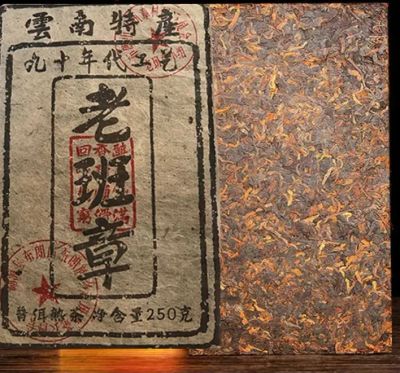 雲南特產
九十年代工艺
老班章
普洱熟茶 净含量250克